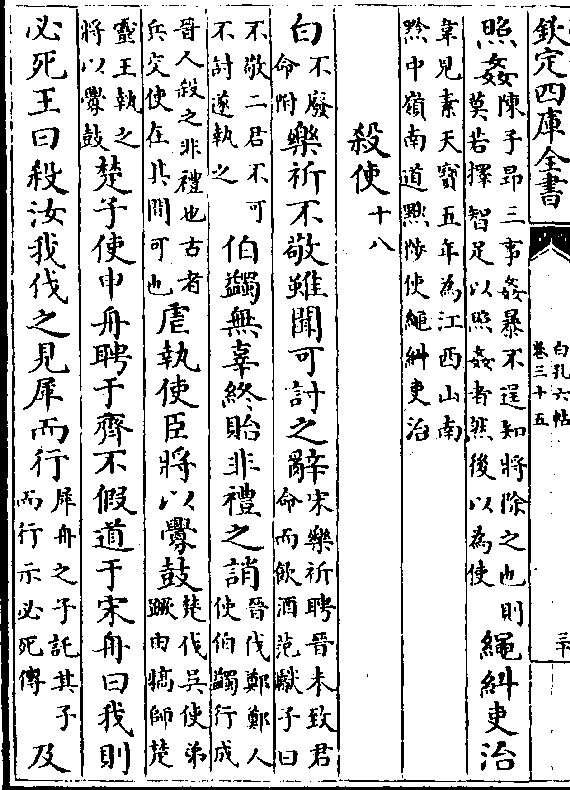 欽定四庫全書
白孔六帖
卷三十五
三十
照姦
陳子昂三事姦暴不逞知將除之也則
莫若擇智足以照姦者然後以為使
繩糾吏治
韋見素天寶五年為江西山南
黔中嶺南道黜陟使繩糾吏治
殺使十八
白
不廢
命附
樂祈不敬雖聞可討之辭
宋樂祈聘晉未致君
命而飲酒范獻子曰
不敬二君不可
不討遂執之
伯蠲無辜終貽非禮之誚
晉伐鄭鄭人
使伯蠲行成
晉人殺之非禮也古者
兵交使在其間可也
虐執使臣將以釁鼓
楚伐吳使弟
蹶由犒師楚
靈王執之
將以釁鼓
楚子使申舟聘于齊不假道于宋舟曰我則
必死王曰殺汝我伐之見犀而行
犀舟之子託其子
而行示必死傳
及